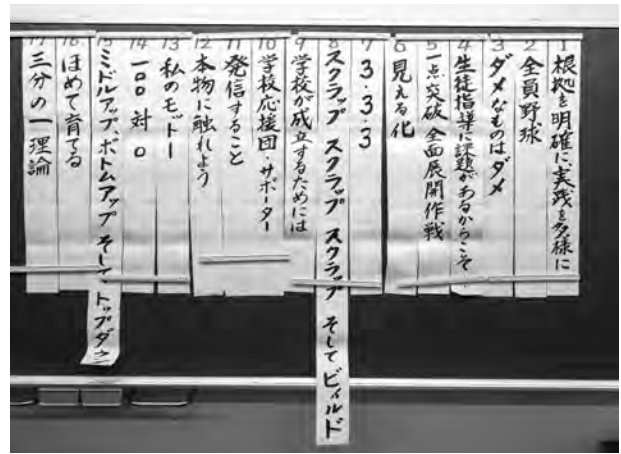 1 根拠を明確に、実践を多様に
2 全員野球
3 ダメなものはダメ
4 生徒指導に課題があるからこそ
5 一点突破 全面展開作戦
6 見える化
7 3・3・3
8 スクラップ スクラップ スクラップ そして ビルド
9 学校が成立するためには
10 学校応援団・サポーター
11 発信すること
12 本物に触れよう
13 私のモットー
14 一〇〇 対 〇
15 ミドルアップ、ボトムアップ そして トップダウン
16 ほめて育てる
17 三分の一理論